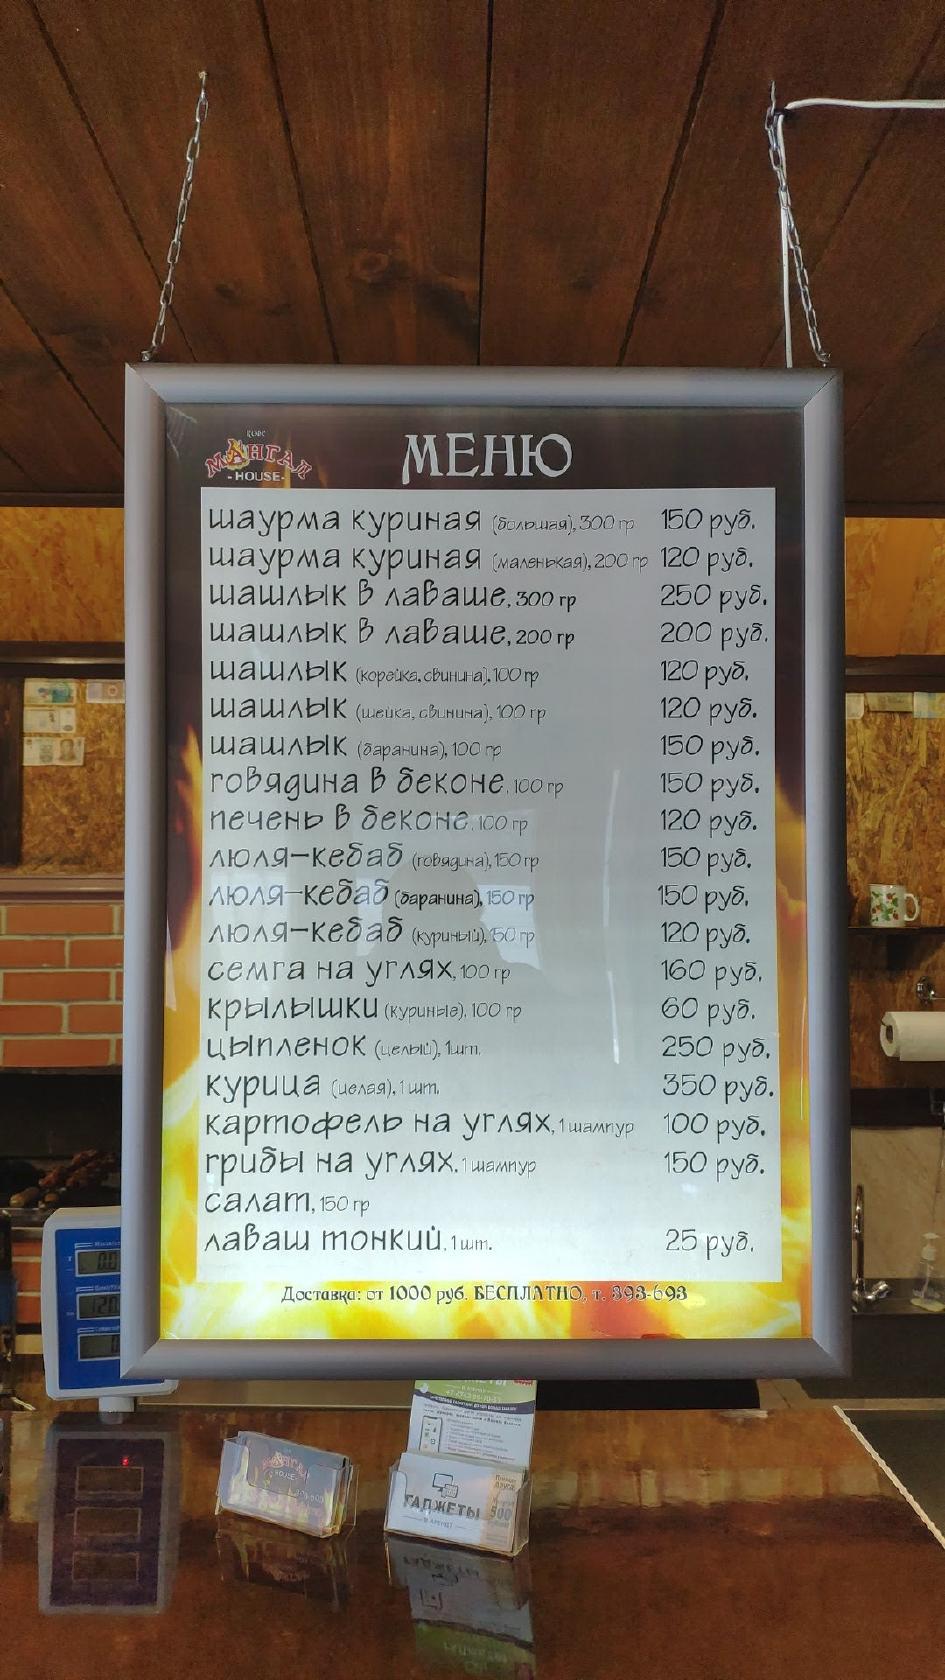 МАНГАЛ
-HOUSE-
МЕНЮ
шаурма куриная (большая), 300 гр 150 руб.
шаурма куриная (маленькая), 200 гр 120 руб.
шашлык в лаваше, 300 гр 250 руб.
шашлык в лаваше, 200 гр 200 руб.
шашлык (корейка, свинина), 100 гр 120 руб.
шашлык (шейка, свинина), 100 гр 120 руб.
шашлык (баранина), 100 гр 150 руб.
говядина в беконе, 100 гр 150 руб.
печень в беконе, 100 гр 120 руб.
люля-кебаб (говядина), 150 гр 150 руб.
люля-кебаб (баранина), 150 гр 150 руб.
люля-кебаб (куриный), 150 гр 120 руб.
семга на углях, 100 гр 160 руб.
крылышки (куриные), 100 гр 60 руб.
цыпленок (целый), 1шт. 250 руб.
курица (целая), 1 шт. 350 руб.
картофель на углях, 1 шампур 100 руб.
грибы на углях. 1 шампур 150 руб.
салат, 150 гр
лаваш тонкий, 1 шт. 25 руб.
Доставка: от 1000 руб. БЕСПЛАТНО, т. 393-693
ГАДЖЕТЫ
В АРЕНДУ
500